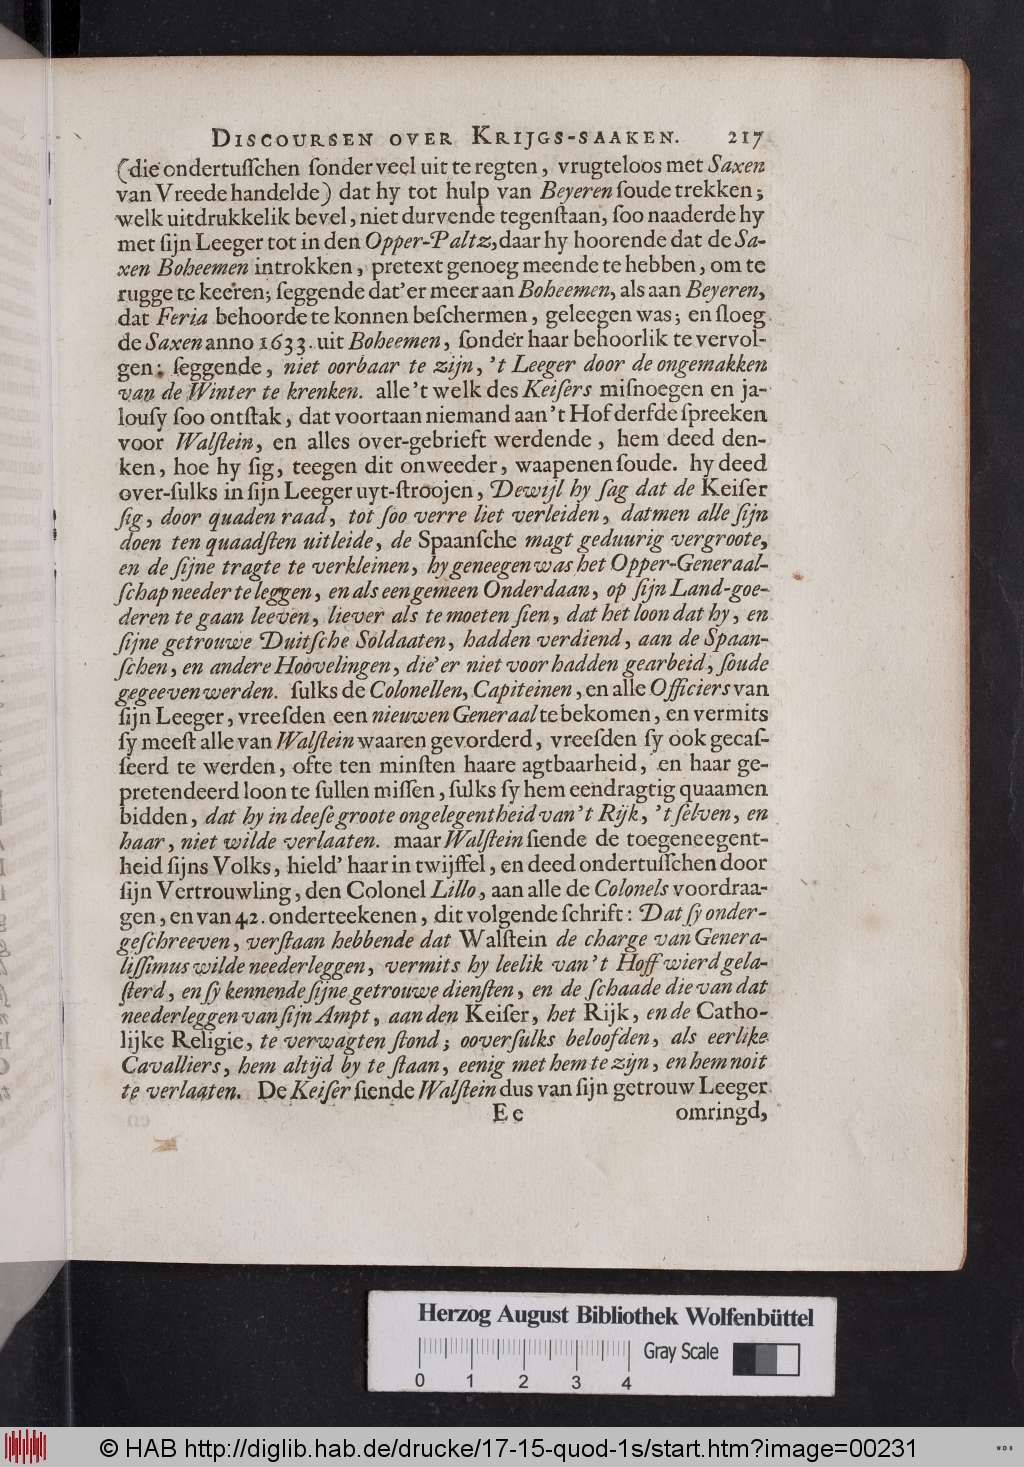 DISCOURSEN OVER KRIJGS-SAAKEN. 217
(die ondertuſſchen ſonder veel uit te regten, vrugteloos met Saxen
van Vreede handelde) dat hy tot hulp van Beyeren ſoude trekken;
welk uitdrukkelik bevel, niet durvende tegenſtaan, ſoo naaderde hy
met ſijn Leeger tot in den Opper-Paltz, daar hy hoorende dat de Sa-
xen Boheemen introkken, pretext genoeg meende te hebben, om te
rugge te keeren; ſeggende dat'er meer aan Boheemen, als aan Beyeren,
dat Feria behoorde te konnen beſchermen, geleegen was; en ſloeg
de Saxen anno 1633. uit Boheemen, ſonder haar behoorlik te vervol-
gen; ſeggende, niet oorbaar te zijn, 't Leeger door de ongemakken
van de Winter te krenken. alle 't welk des Keiſers miſnoegen en ja-
louſy ſoo ontſtak, dat voortaan niemand aan 't Hof derfde ſpreeken
voor Walſtein, en alles over-gebrieft werdende, hem deed den-
ken, hoe hy ſig, teegen dit onweeder, waapenen ſoude. hy deed
over-ſulks in ſijn Leeger uyt-ſtroojen, Dewijl hy ſag dat de Keiſer
ſig, door quaden raad, tot ſoo verre liet verleiden, datmen alle ſijn
doen ten quaadſten uitleide, de Spaanſche magt geduurig vergroote,
en de ſijne tragte te verkleinen, hy geneegen was het Opper-Generaal-
ſchap needer te leggen, en als een gemeen Onderdaan, op ſijn Land-goe-
deren te gaan leeven, liever als te moeten ſien, dat het loon dat hy, en
ſijne getrouwe Duitſche Soldaaten, hadden verdiend, aan de Spaan-
ſchen, en andere Hoovelingen, die'er niet voor hadden gearbeid, ſoude
gegeeven werden. ſulks de Colonellen, Capiteinen, en alle Officiers van
ſijn Leeger, vreeſden een nieuwen Generaal te bekomen, en vermits
ſy meeſt alle van Walſtein waaren gevorderd, vreeſden ſy ook gecaſ-
ſeerd te werden, ofte ten minſten haare agtbaarheid, en haar ge-
pretendeerd loon te ſullen miſſen, ſulks ſy hem eendragtig quaamen
bidden, dat hy in deeſe groote ongelegentheid van 't Rijk, 't ſelven, en
haar, niet wilde verlaaten. maar Walſtein ſiende de toegeneegent-
heid ſijns Volks, hield' haar in twijffel, en deed ondertuſſchen door
ſijn Vertrouwling, den Colonel Lillo, aan alle de Colonels voordraa-
gen, en van 42. onderteekenen, dit volgende ſchrift: Dat ſy onder-
geſchreeven, verſtaan hebbende dat Walſtein de charge van Genera-
liſſimus wilde neederleggen, vermits hy leelik van 't Hoff wierd gela-
ſterd, en ſy kennende ſijne getrouwe dienſten, en de ſchaade die van dat
neederleggen van ſijn Ampt, aan den Keiſer, het Rijk, en de Catho-
lijke Religie, te verwagten ſtond; ooverſulks beloofden, als eerlike
Cavalliers, hem altijd by te ſtaan, eenig met hem te zijn, en hem noit
te verlaaten. De Keiſer ſiende Walſtein dus van ſijn getrouw Leeger
Ee omringd,
Herzog August Bibliothek Wolfenbüttel
Gray Scale
0 1 2 3 4
© HAB http://diglib.hab.de/drucke/17-15-quod-1s/start.htm?image=00231